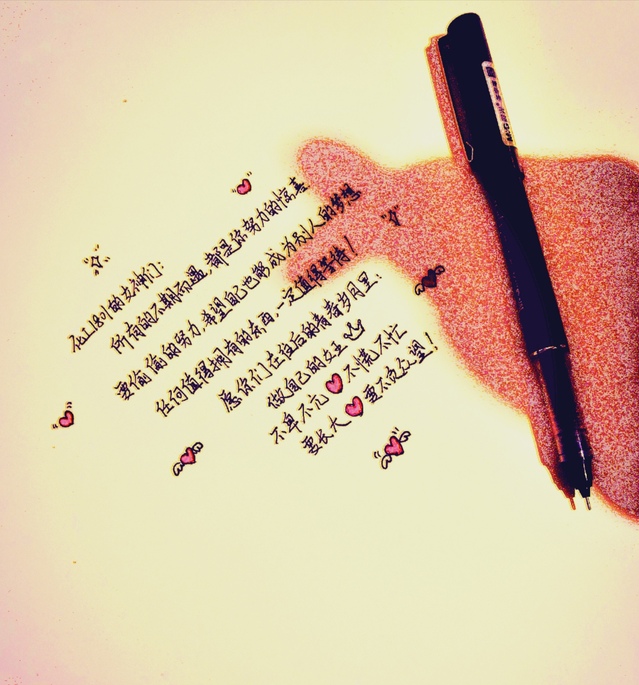 化工1801的女神们:
所有的不期而遇,都是你努力的惊喜
要偷偷的努力,希望自己也能成为别人的梦想
任何值得拥有的东西,一定值得等待!
愿你们在往后的青春岁月里:
做自己的女王
不卑不亢 不慌不忙
要长大 要不负众望!
M&G